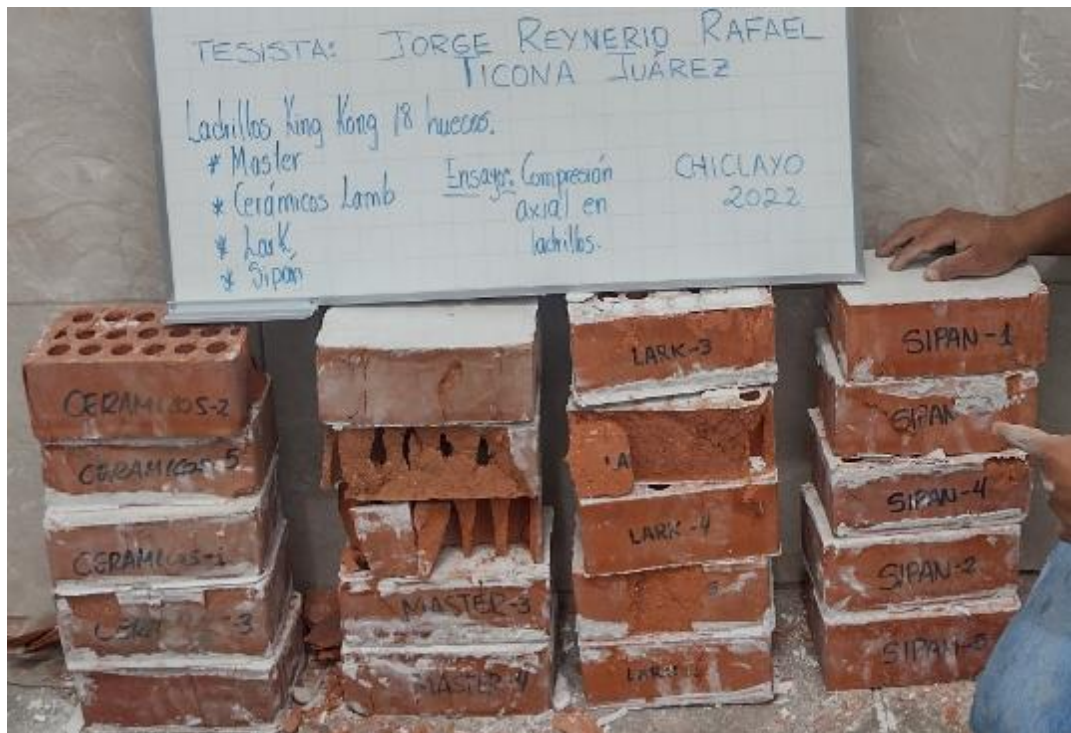 TESISTA: JORGE REYNERIO RAFAEL
TICONA JUÁREZ
Ladrillos King Kong 18 huecos.
* Master
* Cerámicos Lamb
* Lark
* Sipán
Ensayo: Compresión
axial en
ladrillos.
CHICLAYO
2022
CERAMICOS-2
CERAMICOS-5
CERAMICOS-1
3
MASTER-3
MASTER-4
LARK-3
LA
LARK-4
LARK
SIPAN-1
SIPAN
SIPAN-4
SIPAN-2
SIPAN-5